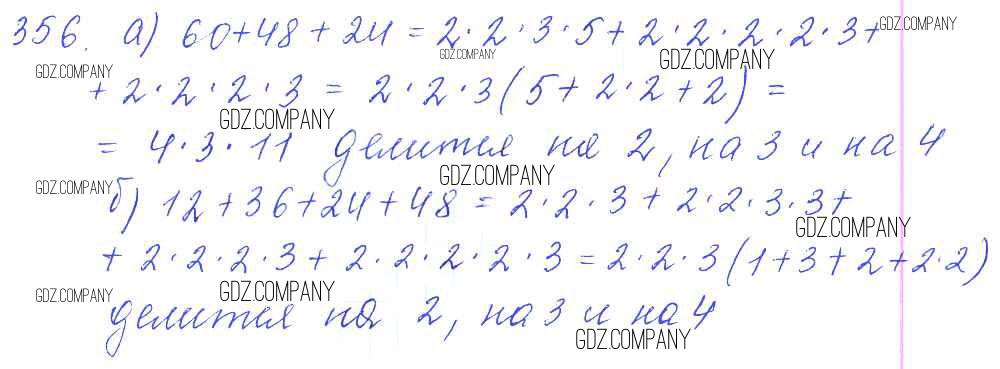 356. а) 60+48+24 = 2·2·3·5+2·2·2·2·3+ GDZ.COMPANY
GDZ.COMPANY GDZ.COMPANY GDZ.COMPANY
+ 2·2·2·3 = 2·2·3(5+2·2+2) =
GDZ.COMPANY
= 4·3·11 делится на 2, на 3 и на 4
GDZ.COMPANY GDZ.COMPANY
б) 12+36+24+48 = 2·2·3+2·2·3·3+
GDZ.COMPANY
+ 2·2·2·3+2·2·2·2·3=2·2·3(1+3+2+2·2)
GDZ.COMPANY GDZ.COMPANY
делится на 2, на 3 и на 4
GDZ.COMPANY